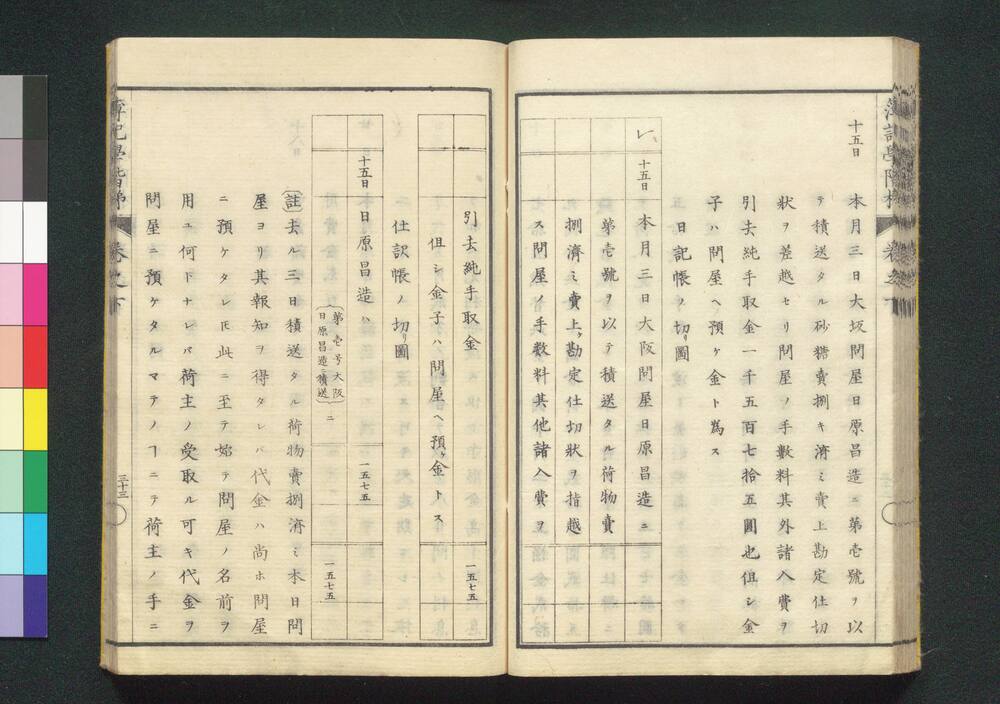 十五日
本月三日大坂問屋日原昌造ニ第壱號ヲ以
テ積送タル砂糖賣捌キ濟ミ賣上勘定仕切
狀ヲ差越セリ問屋ノ手數料其外諸入費ヲ
引去純手取金一千五百七拾五圓也但シ金
子ハ問屋ヘ預ケ金ト爲ス
日記帳ノ切リ圖
十五日
本月三日大阪問屋日原昌造ニ
第壱號ヲ以テ積送タル荷物賣
捌濟ミ賣上ケ勘定仕切狀ヲ指越
ス問屋ノ手數料其他諸入費ヲ
引去純手取金
一五七五
但シ金子ハ問屋ヘ預ケ金トス
仕訳帳ノ切リ圖
十五日
日原昌造ハ
第壱号大阪
日原昌造ニ積送
ニ
一五七五
一五七五
〔註〕去ル三日積送タル荷物賣捌濟ミ本日問
屋ヨリ其報知ヲ得タレバ代金ハ尚ホ問屋
ニ預ケタレ𪜈此ニ至テ始テ問屋ノ名前ヲ
用ユ何トナレバ荷主ノ受取ル可キ代金ヲ
問屋ニ預ケタルマテノヿニテ荷主ノ手ニ
簿記學階梯
卷之下
三十三